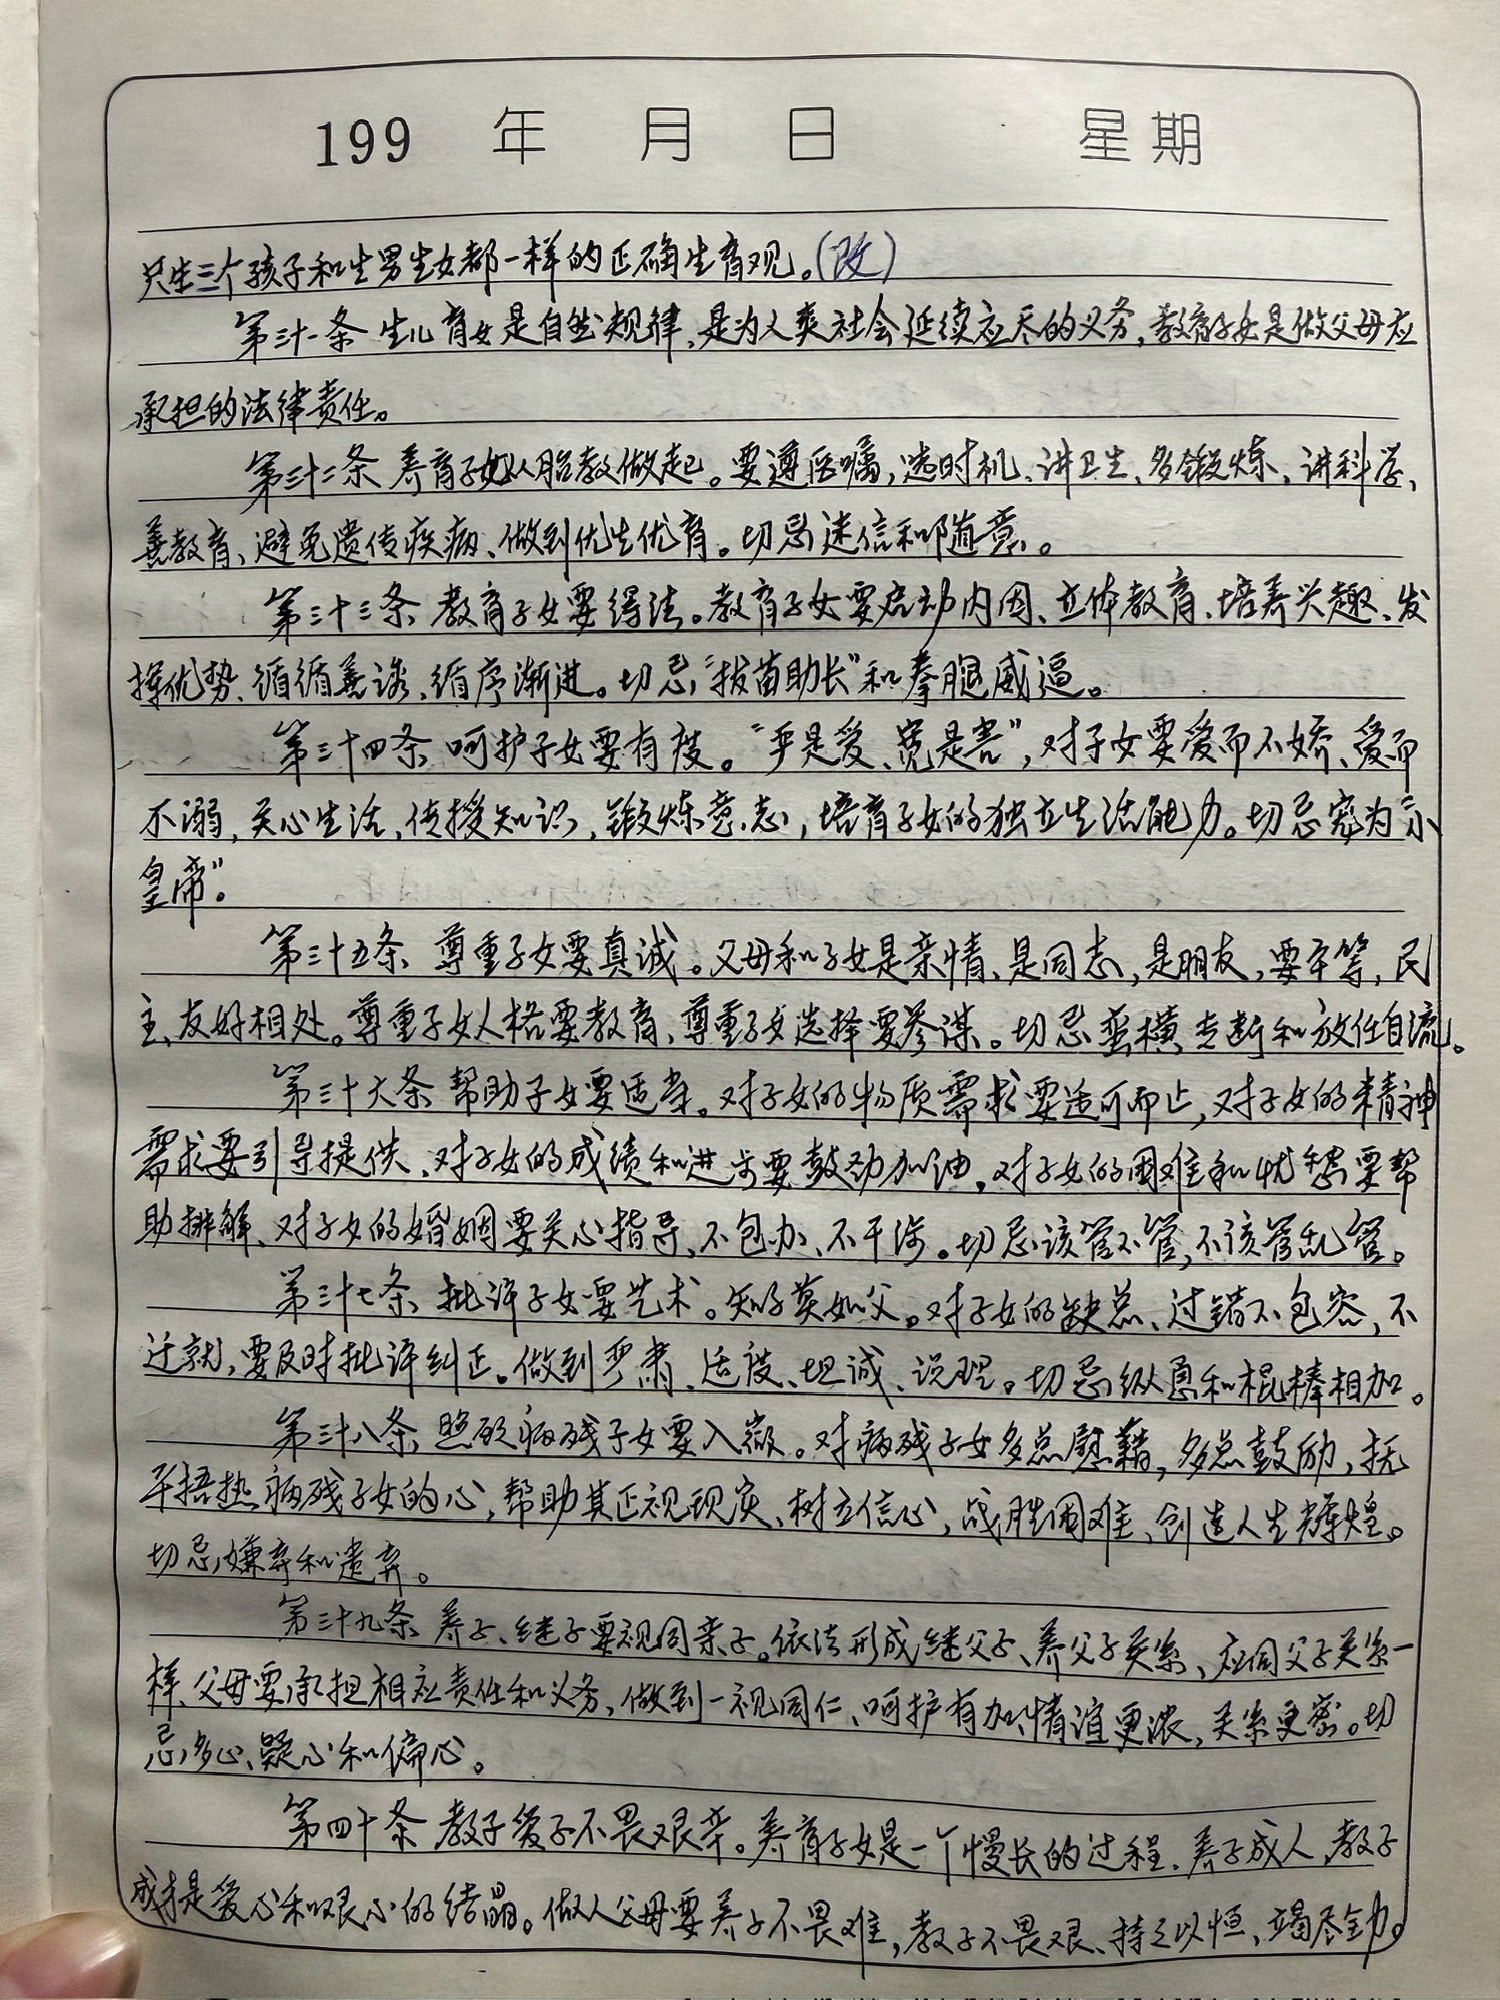 199 年 月 日 星期
只生三个孩子和生男生女都一样的正确生育观。(改)
第三十一条 生儿育女是自然规律,是为人类社会延续应尽的义务,教育子女是做父母应
承担的法律责任。
第三十二条 养育子女从胎教做起。要遵医嘱,选时机、讲卫生、多锻炼、讲科学、
善教育、避免遗传疾病、做到优生优育。切忌迷信和随意。
第三十三条 教育子女要得法。教育子女要启动内因、立体教育、培养兴趣、发
挥优势、循循善诱、循序渐进。切忌“拔苗助长”和拳腿威逼。
第三十四条 呵护子女要有度。“严是爱、宽是害”,对子女要爱而不娇、爱而
不溺,关心生活,传授知识,锻炼意志,培育子女的独立生活能力。切忌宠为“小
皇帝”。
第三十五条 尊重子女要真诚。父母和子女是亲情、是同志,是朋友,要平等,民
主、友好相处。尊重子女人格要教育、尊重子女选择要参谋。切忌蛮横、专断和放任自流。
第三十六条 帮助子女要适当。对子女的物质需求要适可而止,对子女的精神
需求要引导提供、对子女的成绩和进步要鼓劲加油,对子女的困难和忧愁要帮
助排解、对子女的婚姻要关心指导、不包办、不干涉。切忌该管不管,不该管乱管。
第三十七条 批评子女要艺术。知子莫如父。对子女的缺点、过错不包容,不
迁就,要及时批评纠正。做到严肃、适度、坦诚、说理。切忌纵恿和棍棒相加。
第三十八条 照顾病残子女要入微。对病残子女多点慰藉,多点鼓励,抚
平捂热病残子女的心,帮助其正视现实、树立信心,战胜困难、创造人生辉煌。
切忌嫌弃和遗弃。
第三十九条 养子、继子要视同亲子。依法形成继父子、养父子关系、应同父子关系一
样、父母要承担相应责任和义务,做到一视同仁、呵护有加、情谊更浓,关系更密。切
忌多心、疑心和偏心。
第四十条 教子爱子不畏艰辛。养育子女是一个慢长的过程、养子成人,教子
成才是爱心和艰心的结晶。做人父母要养子不畏难,教子不畏艰、持之以恒、竭尽全力。